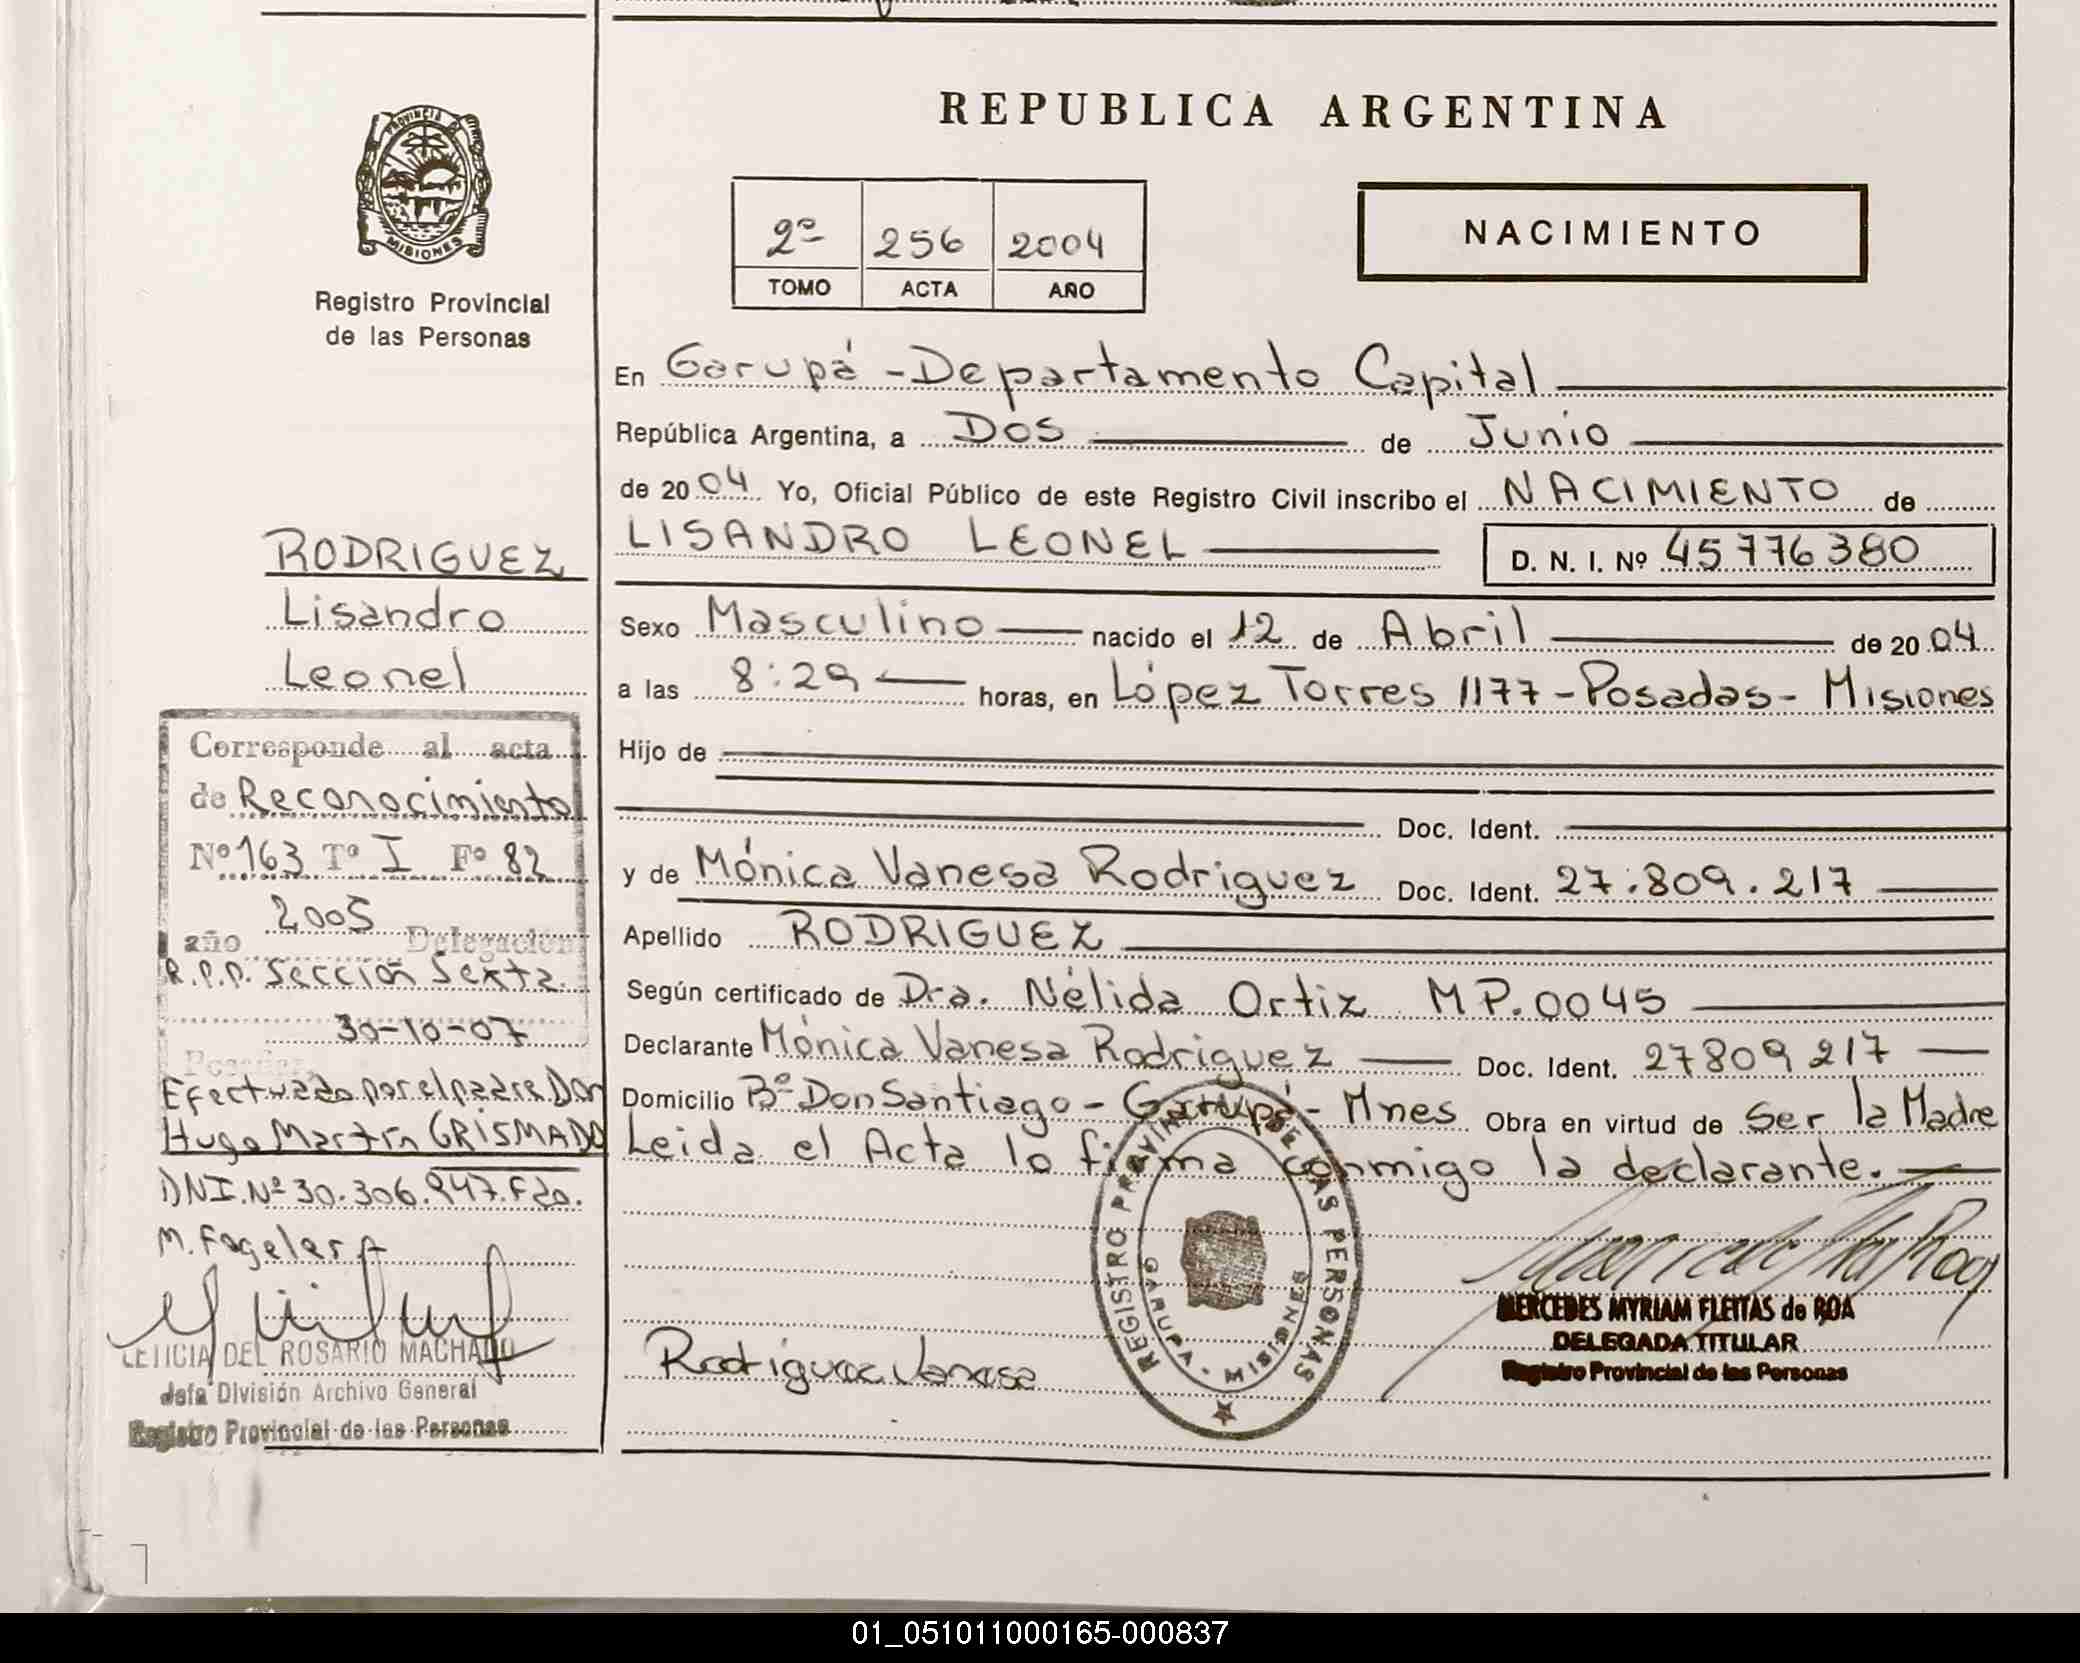 PROVINCIA DE
MISIONES
Registro Provincial
de las Personas
RODRIGUEZ
Lisandro
Leonel
Corresponde al acta
de Reconocimiento
Nº 163 Tº I Fº 82
2005
año Delegación
R.P.P. Sección Sexta.
30-10-07
Posadas
Efectuado por el padre Don
Hugo Martín GRISMADO
DNI.Nº 30.306.947. Fdo.
M. Fogeler
LETICIA DEL ROSARIO MACHADO
Jefa División Archivo General
Registro Provincial de las Personas
REPUBLICA ARGENTINA
2º 256 2004
TOMO ACTA AÑO
NACIMIENTO
En Garupá - Departamento Capital
República Argentina, a Dos de Junio
de 2004 Yo, Oficial Público de este Registro Civil inscribo el NACIMIENTO de
LISANDRO LEONEL D. N. I. Nº 45776380
Sexo Masculino nacido el 12 de Abril de 2004
a las 8:29 horas, en López Torres 1177 - Posadas - Misiones
Hijo de
Doc. Ident.
y de Mónica Vanesa Rodriguez Doc. Ident. 27.809.217
Apellido RODRIGUEZ
Según certificado de Dra. Nélida Ortiz MP.0045
Declarante Mónica Vanesa Rodriguez Doc. Ident. 27809217
Domicilio Bº Don Santiago - Garupá - Mnes Obra en virtud de Ser la Madre
Leida el Acta lo firma conmigo la declarante.
REGISTRO PROVINCIAL DE LAS PERSONAS
GARUPA - MISIONES
Rodriguez Vanesa
MERCEDES MYRIAM FLEITAS de ROA
DELEGADA TITULAR
Registro Provincial de las Personas
01_051011000165-000837